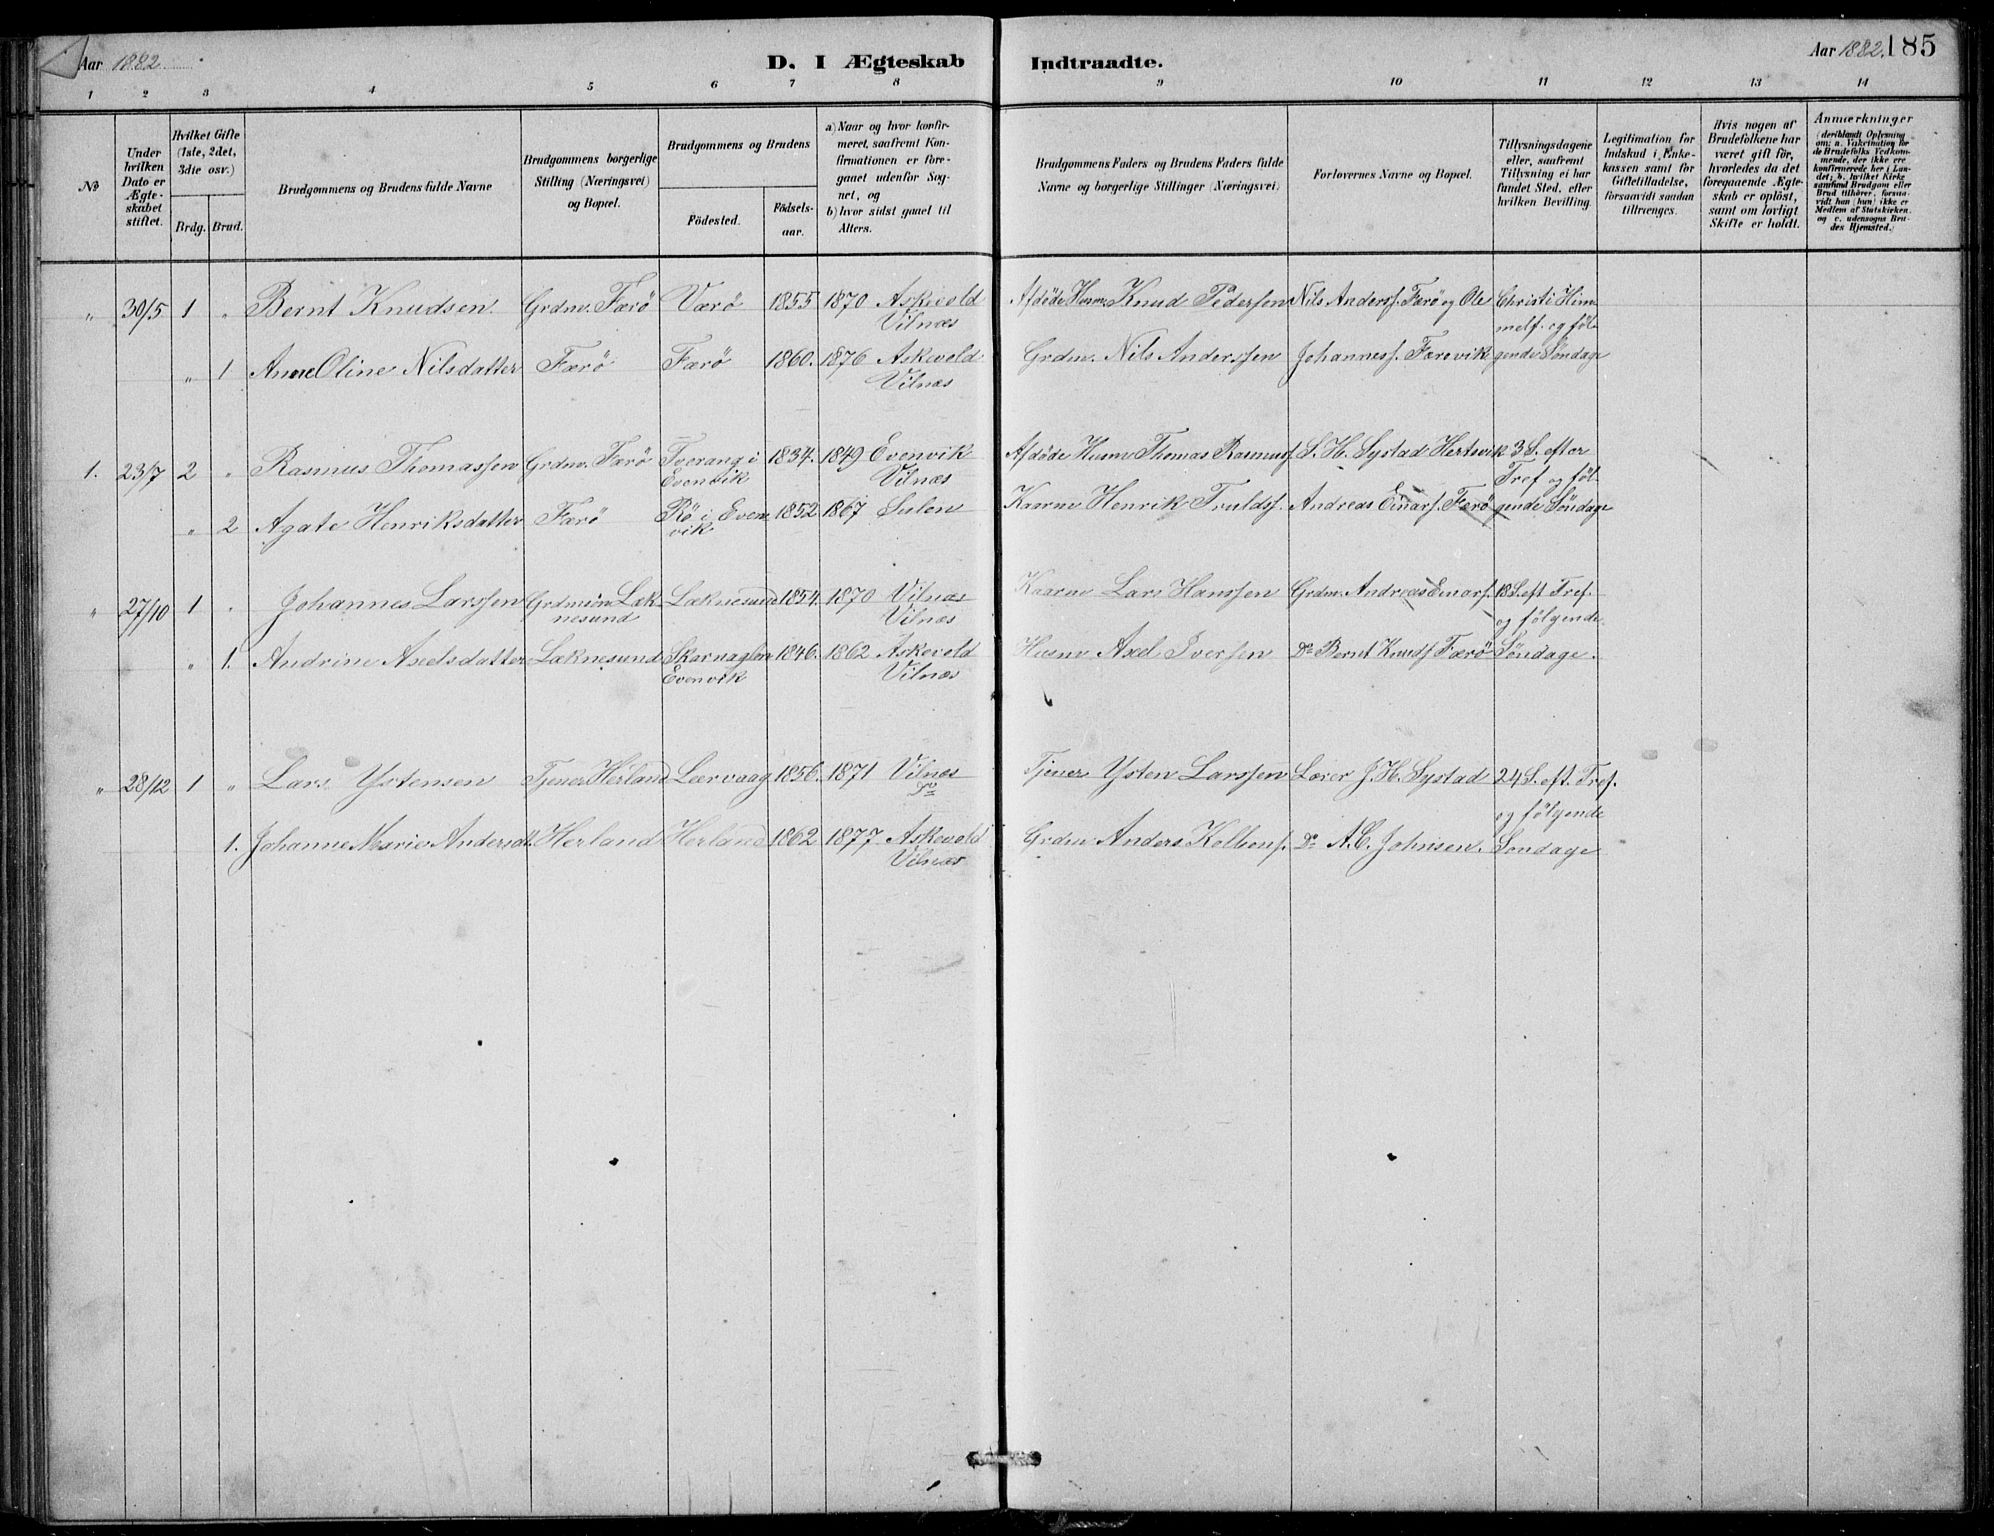 Aar 1882.
D. I Ægteskab
Indtraadte.
Aar 1882. 185
1 2 3 4 5 6 7 8 9 10 11 12 13 14
No
Under hvilken Dato er Ægteskabet stiftet.
Hvilket Gifte (1ste, 2det, 3die osv.)
Brdg. Brud.
Brudgommens og Brudens fulde Navne
Brudgommens borgerlige Stilling (Næringsvei) og Bopæl.
Brudgommens og Brudens
Födested. Födselsaar.
a) Naar og hvor konfirmeret, saafremt Konfirmationen er foregaaet udenfor Sognet, og
b) hvor sidst gaaet til Alters.
Brudgommens Faders og Brudens Faders fulde Navne og borgerlige Stillinger (Næringsvei)
Forlovernes Navne og Bopæl.
Tillysningsdagene eller, saafremt Tillysning ei har fundet Sted, efter hvilken Bevilling.
Legitimation for Indskud i Enkekassen samt for Giftetilladelse, forsaavidt saadan tiltrænges.
Hvis nogen af Brudefolkene har været gift för, hvorledes da det foregaaende Ægteskab er oplöst, samt om lovligt Skifte er holdt.
Anmærkninger
(deriblandt Oplysning om: a. Vakcination for de Brudefolks Vedkommende, der ikke ere konfirmerede her i Landet; b. hvilket Kirkesamfund Brudgom eller Brud tilhörer, forsaavidt han (hun) ikke er Medlem af Statskirken, og c. udensogns Brudes Hjemsted.)
„ 30/5 1 „ Bernt Knudsen. Grdm. Færö Værö 1855 1870 Askevold Afdöde Husm. Knud Pederssen Nils Anderss. Færö og Ole Christi Him
Vilnæs melf. og föl
„ 1 Anne Oline Nilsdatter Færö Færö 1860. 1876 Askevold Grdm. Nils Anderssen Johanness. Færövik gende Söndage
Vilnæs
1. 23/7 2 „ Rasmus Thomassen Grdm. Færö Tverang i 1834. 1849 Evenvik Afdöde Husm Thomas Rasmuss. S. H. Systad Hertsvik 3 S. efter
Evenvik Vilnæs Tref og föl
„ 2 Agate Henriksdatter Færö Rö i Even 1852 1867 Sulen Kaarm Henrik Trulds. Andreas Einars. Færö gende Söndage
vik
„ 27/10 1 „ Johannes Larssen Grdmsön Læk Læknesund 1854. 1870 Vilnæs Kaarm Lars Hanssen Grdm. Andreas Einars. 18 S. eft Tref.
nesund Vilnæs og fölgende
„ 1. Andrine Axelsdatter Læknesund Skarnaglen 1846. 1862 Askevold Husm Axel Iversen Do Bernt Knuds. Færö Söndage.
Evenvik Vilnæs
„ 28/12 1 „ Lars Ystensen Tjener Herland Lærvaag 1856. 1871 Vilnæs Tjener Ysten Larssen Lærer J. H. Systad 24 S. eft. Tref.
Do og fölgende
1. Johanne Marie Andersd. Herland Herland 1862 1877 Askevold Grdm Anders Kolbens. Do A. C. Johnsen. Söndage
Vilnæs